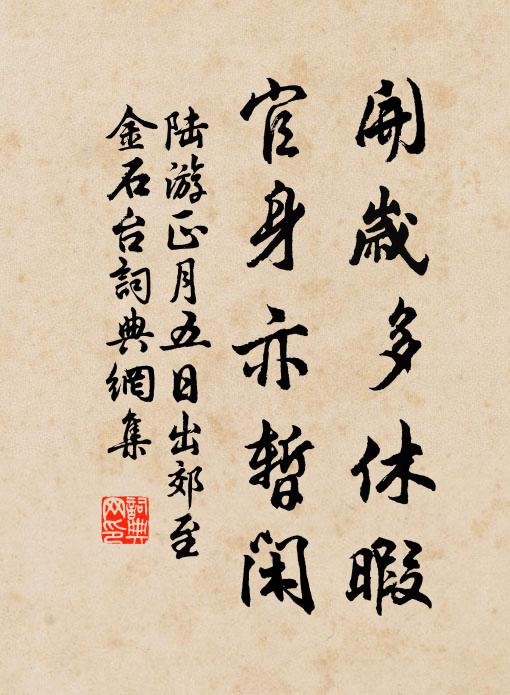 開歲多休暇
官身亦暫閑
陸游正月五日出郊至
金石台詞典網集
詞典網印